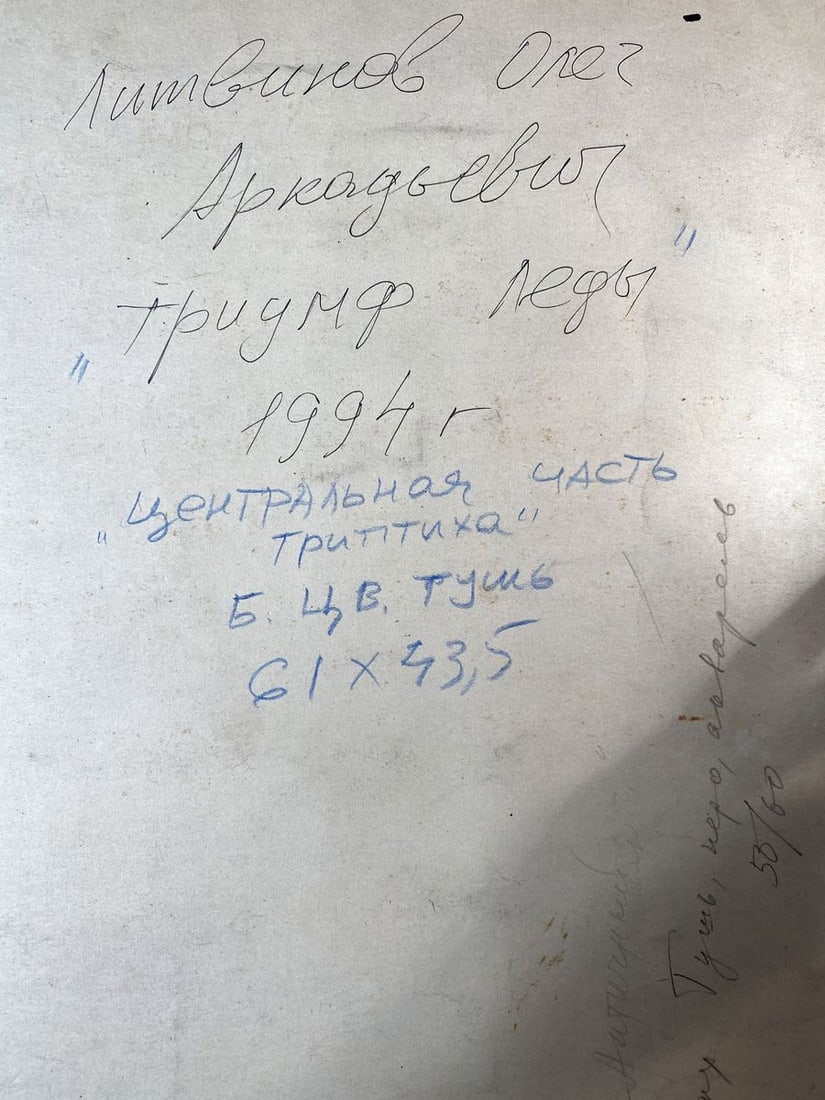 Литвинов Олег
Аркадьевич
"Триумф Леды"
1994 г
"Центральная часть
триптиха"
Б. ЦВ. тушь
61 x 43,5
Тушь, перо, акварель
50/60